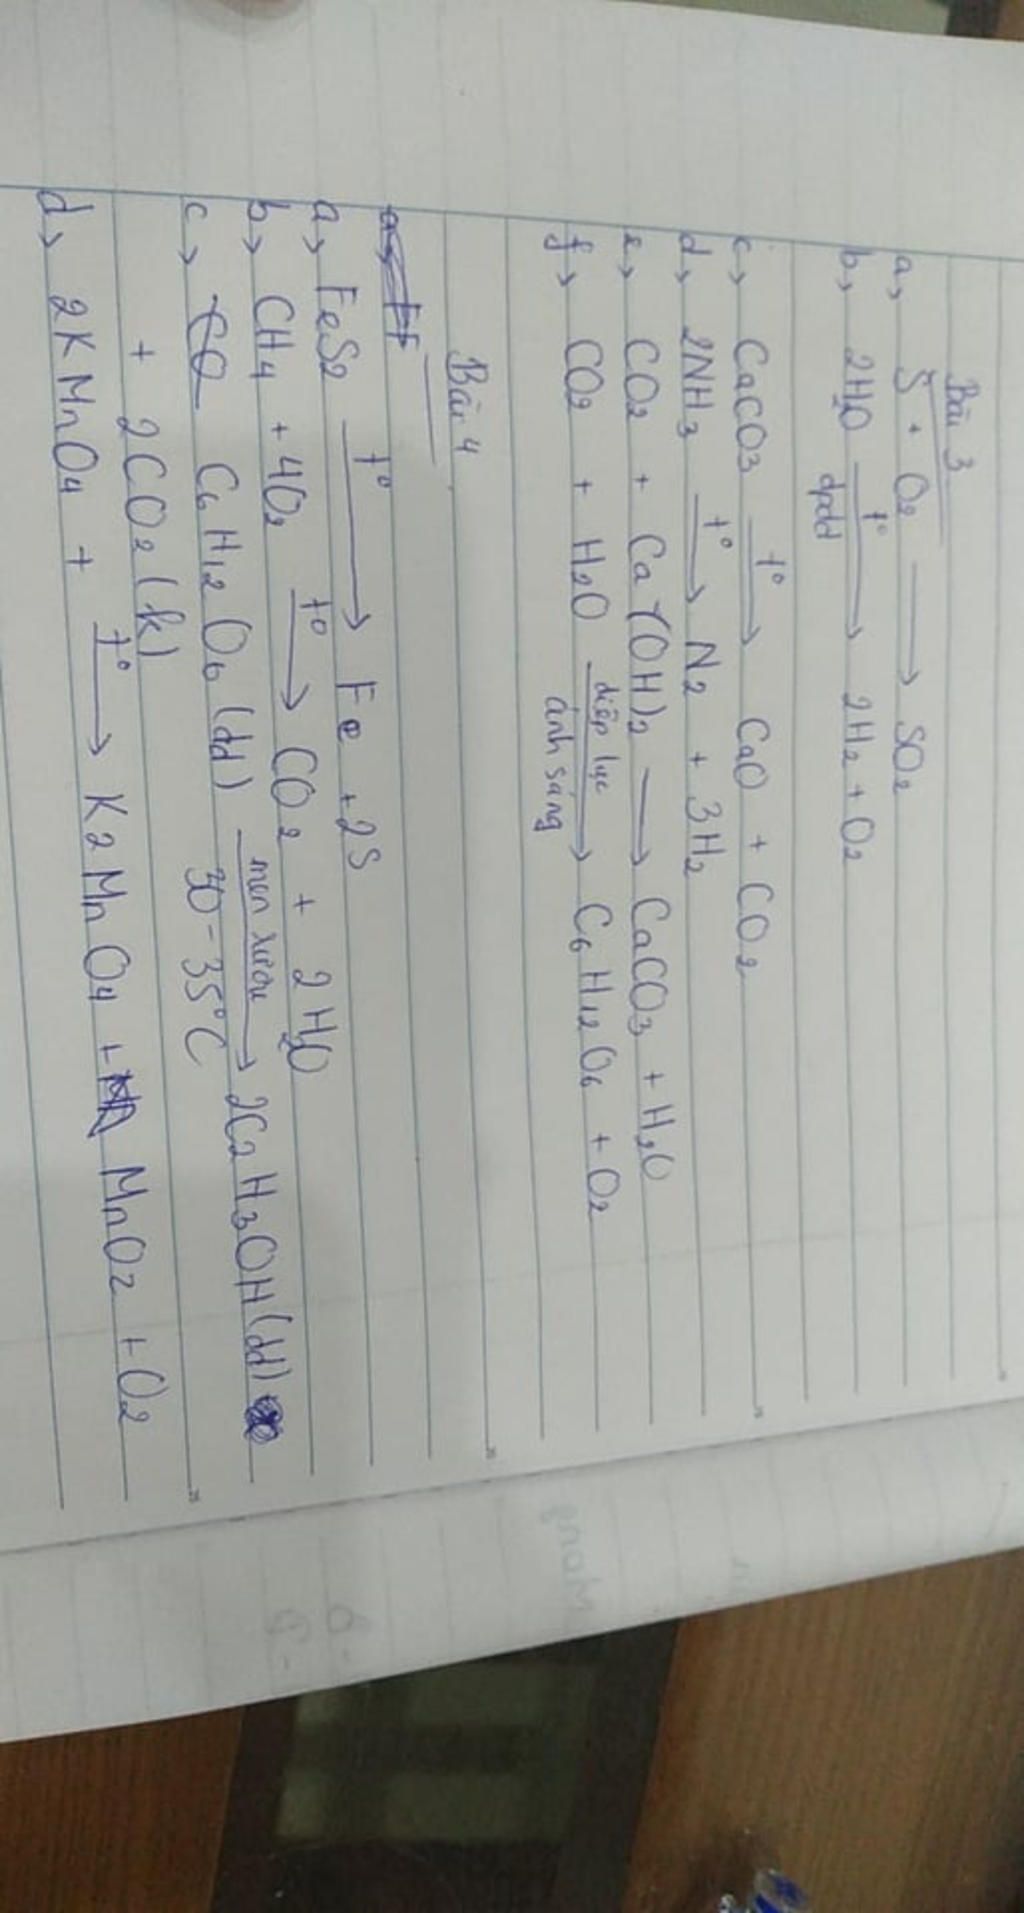 Bài 3
a, S + O2 → SO2
b, 2H2O t°→ đpdd 2H2 + O2
c, CaCO3 t°→ CaO + CO2
d, 2NH3 t°→ N2 + 3H2
e, CO2 + Ca(OH)2 → CaCO3 + H2O
f, CO2 + H2O diệp lục→ ánh sáng C6H12O6 + O2
Bài 4
a, FeS2 t°→ Fe + 2S
b, CH4 + 4O2 t°→ CO2 + 2H2O
c, C6H12O6 (dd) men rượu→ 30-35°C 2C2H3OH (dd)
+ 2CO2 (k)
d, 2KMnO4 + t°→ K2MnO4 + MnO2 + O2